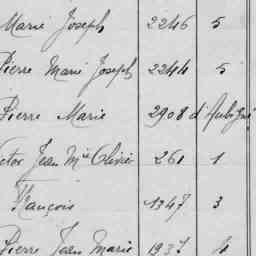 Marie Joseph 2246 5
Pierre Marie Joseph 2244 5
Pierre Marie 2908 d'
Victor Jean Mie Olivier 261 1
François 1347 3
Pierre Jean Marie 1937